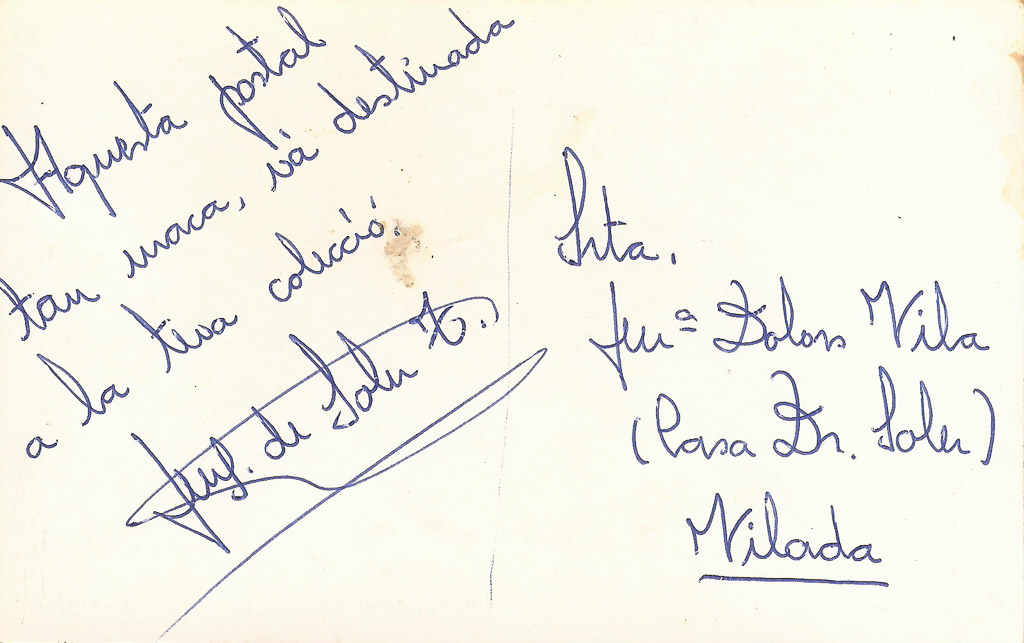 Aquesta postal
tan maca, và destinada
a la teva colecció.
de Soler T.
Srta.
Mª Dolors Vila
(Casa Dr. Soler)
Vilada